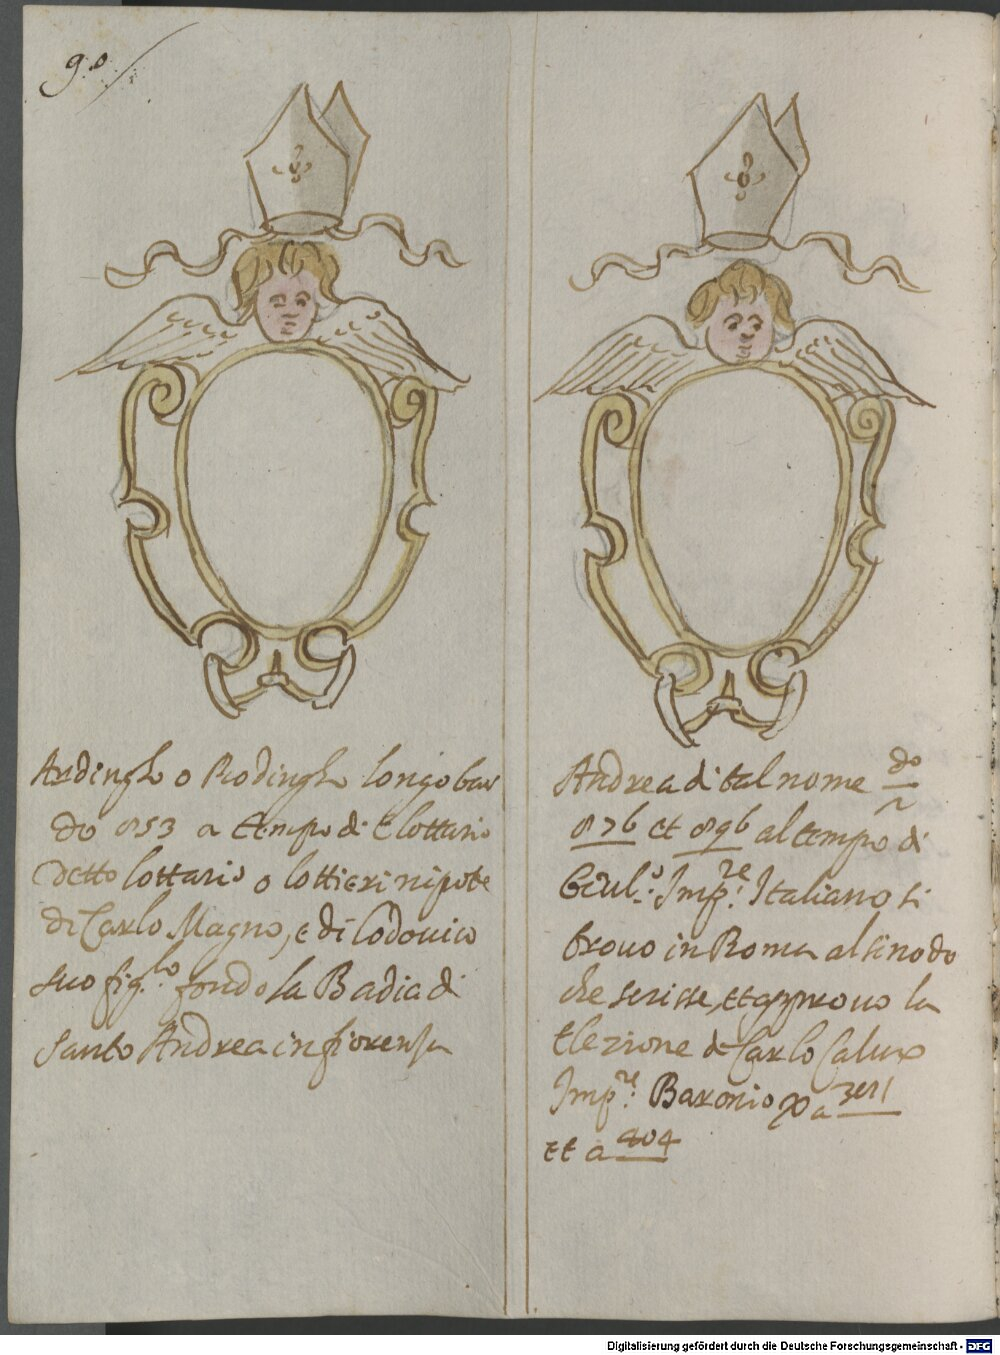 90
Ardingho o Rodingho longobar
do 853 a tempo di Elottario
detto lottario o lottieri nipote
di Carlo Magno, e di Lodovico
suo fig.lo fondò la Badia di
Santo Andrea in fiorenza
Andrea di tal nome do
876 et 896 al tempo di
Imp.re Italiano si
trovo in Roma al sinodo
che scrisse, et approvo la
Elezione di Carlo Calvo
Imp.re Baronio
et a 404
Digitalisierung gefördert durch die Deutsche Forschungsgemeinschaft - DFG